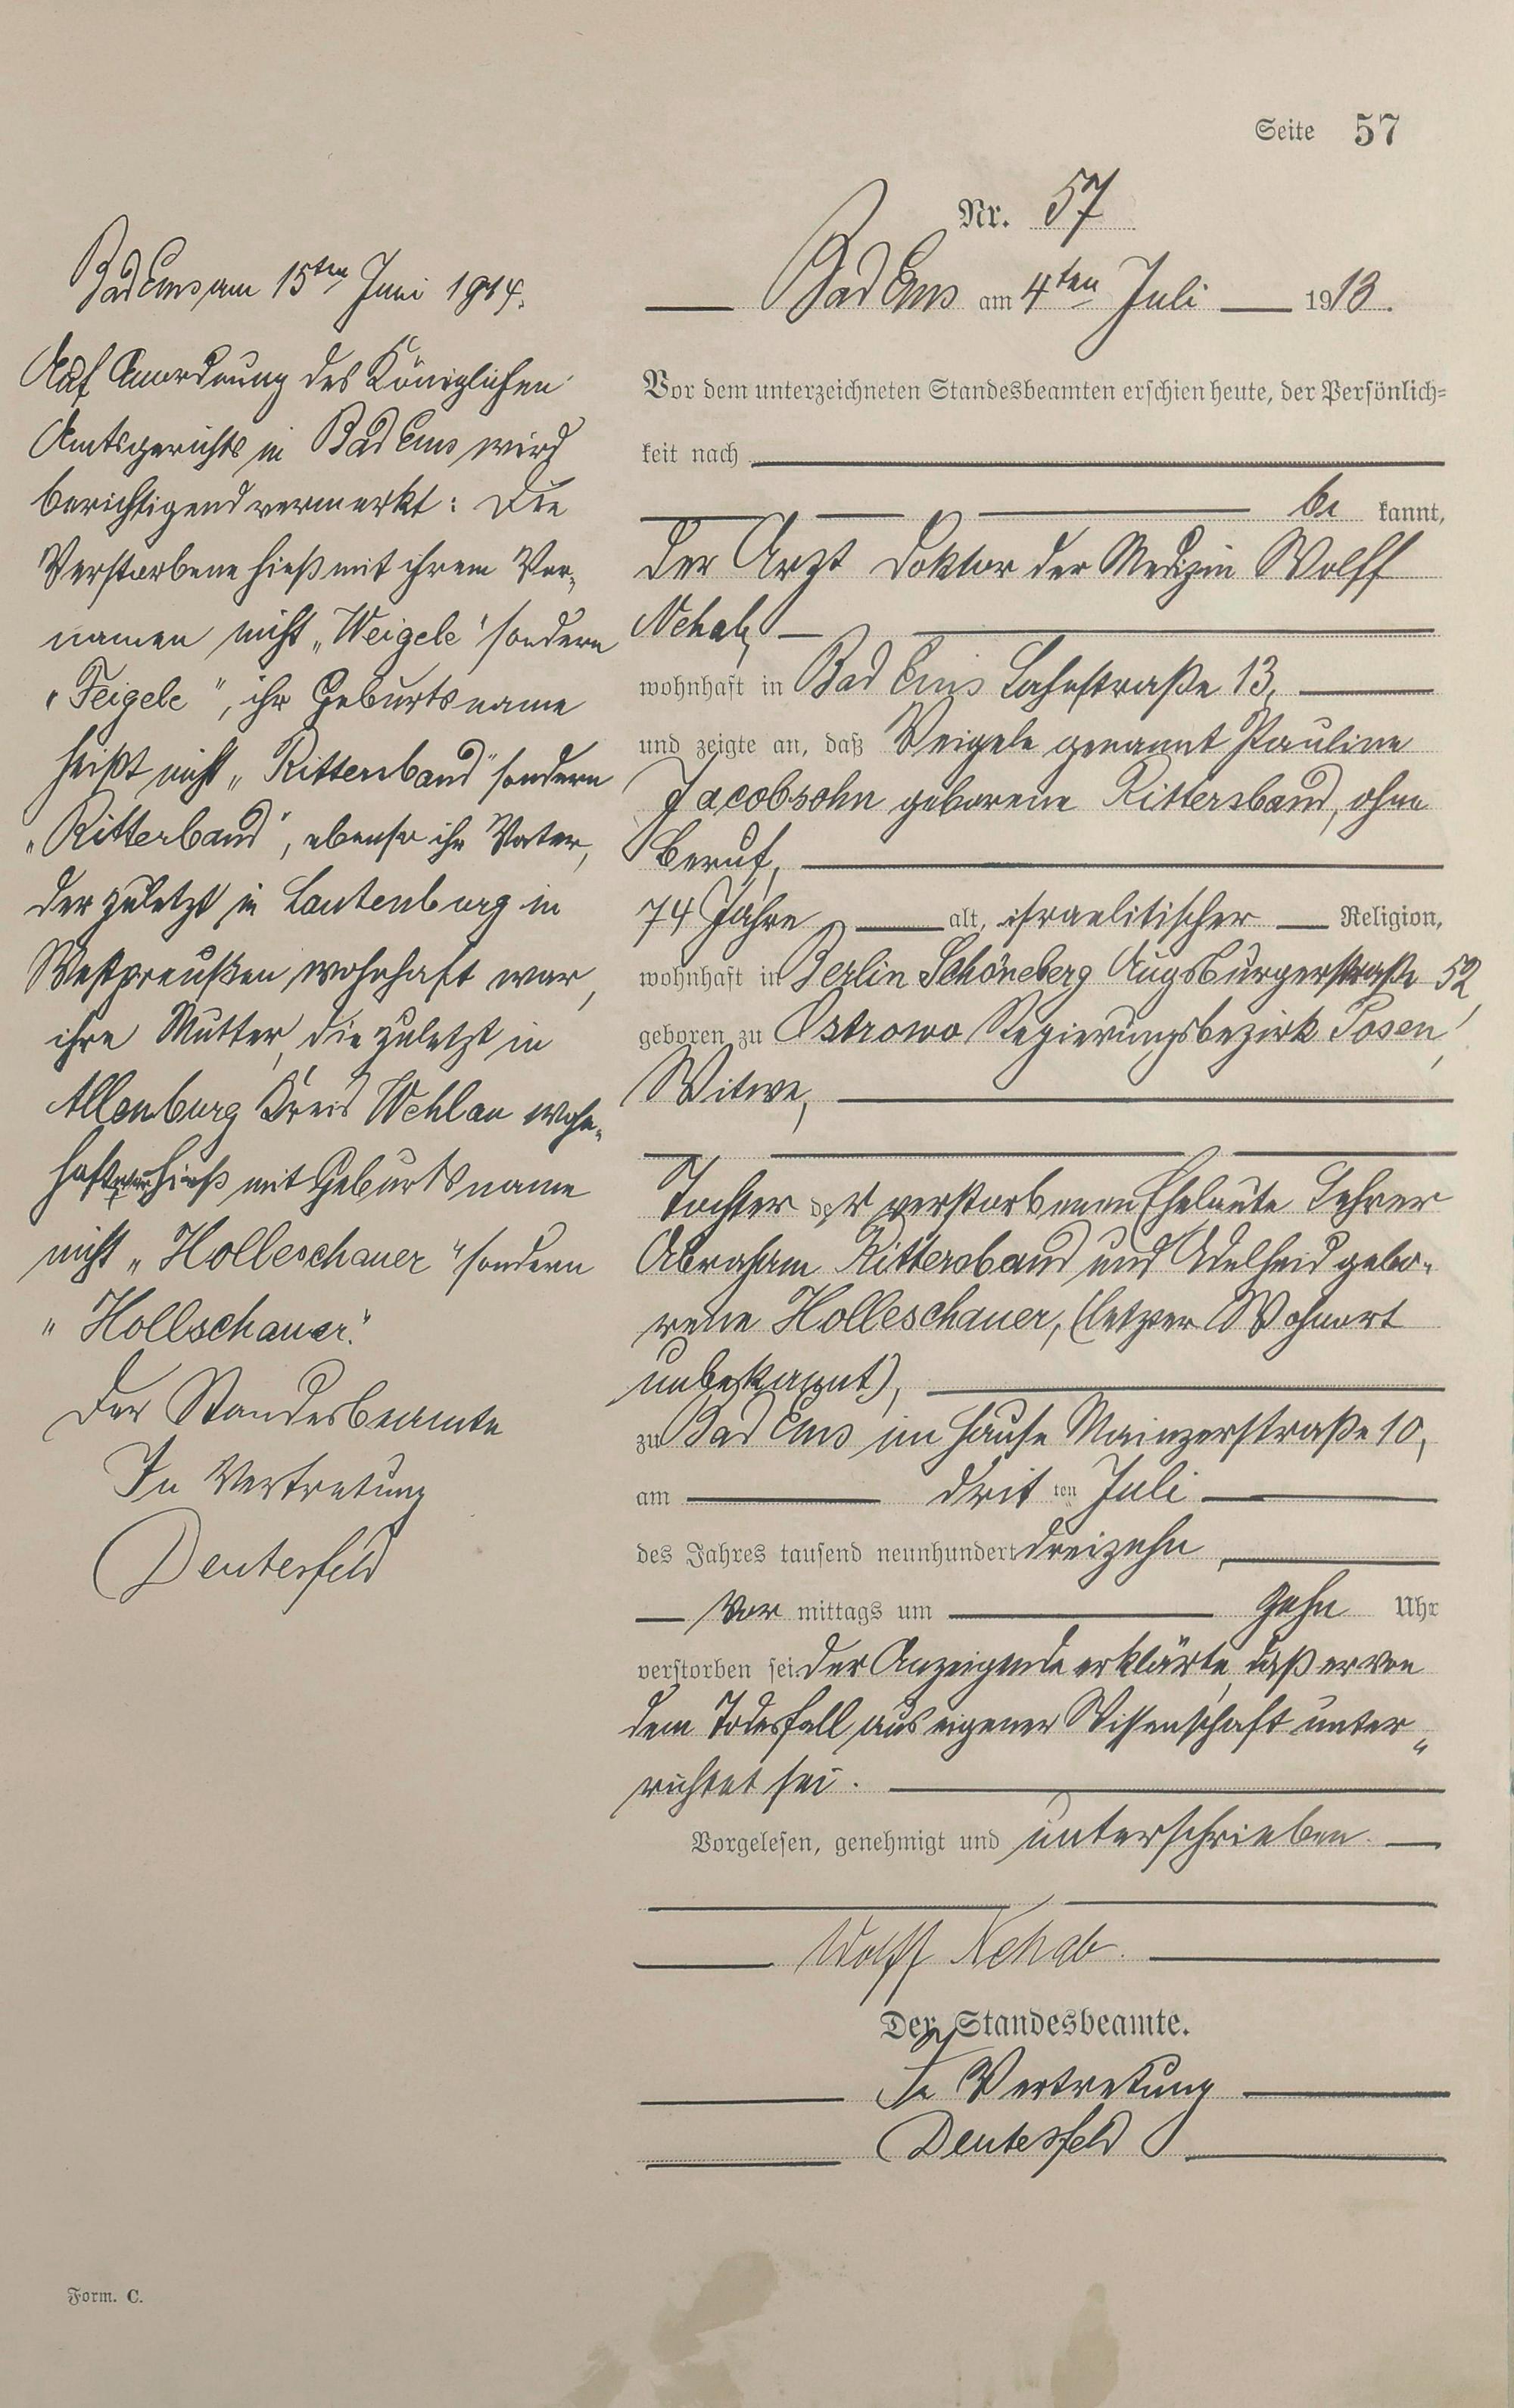 Seite 57
Nr. 57
Bad Ems am 4ten Juli 1913.
Vor dem unterzeichneten Standesbeamten erschien heute, der Persönlich-
keit nach
be kannt,
der Arzt Doktor der Medizin Wolff
Nehab,
wohnhaft in Bad Ems Lahnstraße 13,
und zeigte an, daß Veigele genannt Pauline
Jacobsohn geborene Rittersband, ohne
Beruf,
74 Jahre alt, israelitischer Religion,
wohnhaft in Berlin Schöneberg Augsburgerstraße 52,
geboren zu Ostrowo Regierungsbezirk Posen,
Witwe,
Tochter der verstorbenen Eheleute Lehrer
Abraham Rittersband und Adelheid gebo-
rene Holleschauer, (letzter Wohnort
unbekannt),
zu Bad Ems im Hause Mainzerstraße 10,
am dritten Juli
des Jahres tausend neunhundert dreizehn,
Vor mittags um zehn Uhr
verstorben sei. Der Anzeigende erklärte, daß er von
dem Todesfall aus eigener Wissenschaft unter-
richtet sei.
Vorgelesen, genehmigt und unterschrieben.
Wolff Nehab.
Der Standesbeamte.
In Vertretung
Deutesfeld
Bad Ems am 15ten Juni 1914.
Auf Anordnung des Königlichen
Amtsgerichts in Bad Ems wird
berichtigend vermerkt: Die
Verstorbene hieß mit ihrem Vor-
namen nicht „Weigele" sondern
„Feigele", ihr Geburtsname
heißt nicht „Rittersband" sondern
„Ritterband", ebenso ihr Vater,
der zuletzt in Lautenburg in
Westpreußen wohnhaft war,
ihre Mutter, die zuletzt in
Allenburg Kreis Wehlau wohn-
haft war hieß mit Geburtsname
nicht „Holleschauer" sondern
„Hollschauer."
Der Standesbeamte
In Vertretung
Deutesfeld
Form. C.